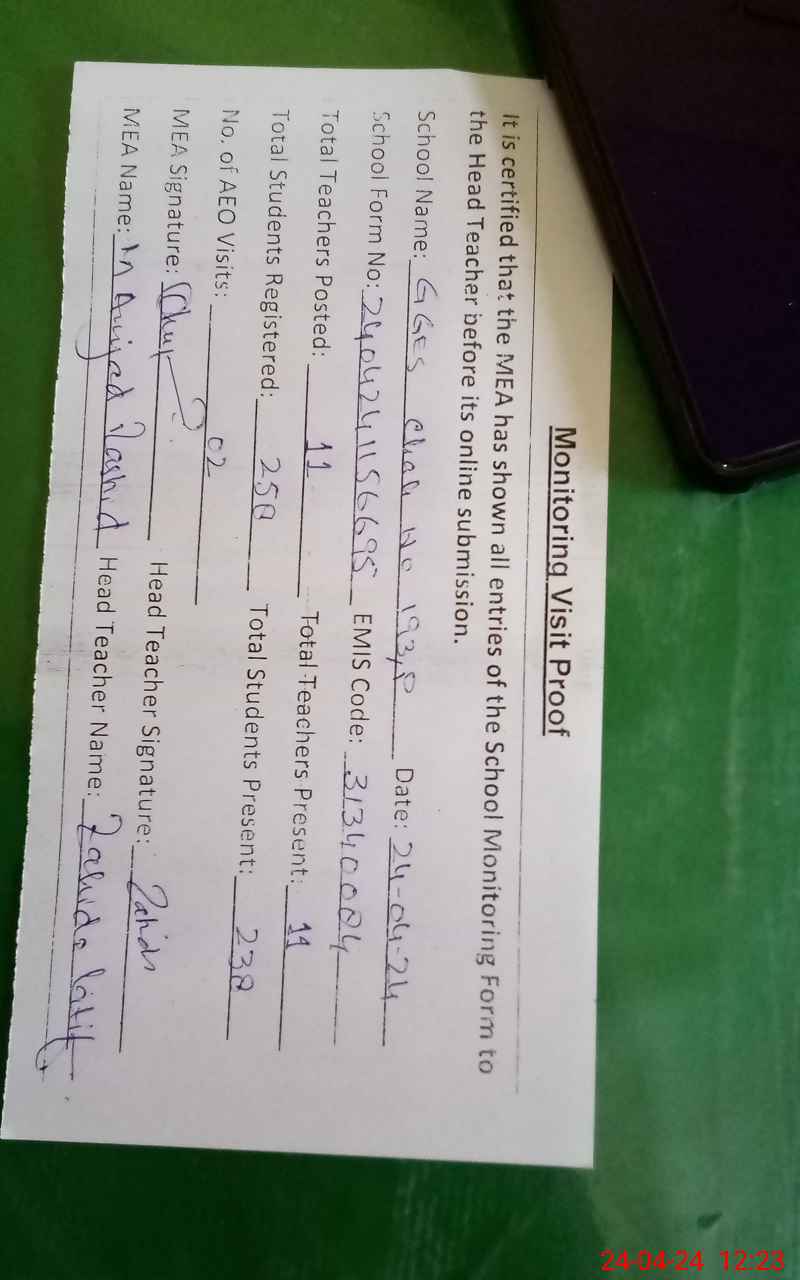 Monitoring Visit Proof
It is certified that the MEA has shown all entries of the School Monitoring Form to
the Head Teacher before its online submission.
School Name: GGES Chak No 193,P Date: 24-04-24
School Form No: EMIS Code: 31340084
Total Teachers Posted: 11 Total Teachers Present: 11
Total Students Registered: 258 Total Students Present: 238
No. of AEO Visits: 02
MEA Signature: Head Teacher Signature: Zahida
MEA Name: M Amjad Rashid Head Teacher Name: Zahida Latif
24-04-24 12:23